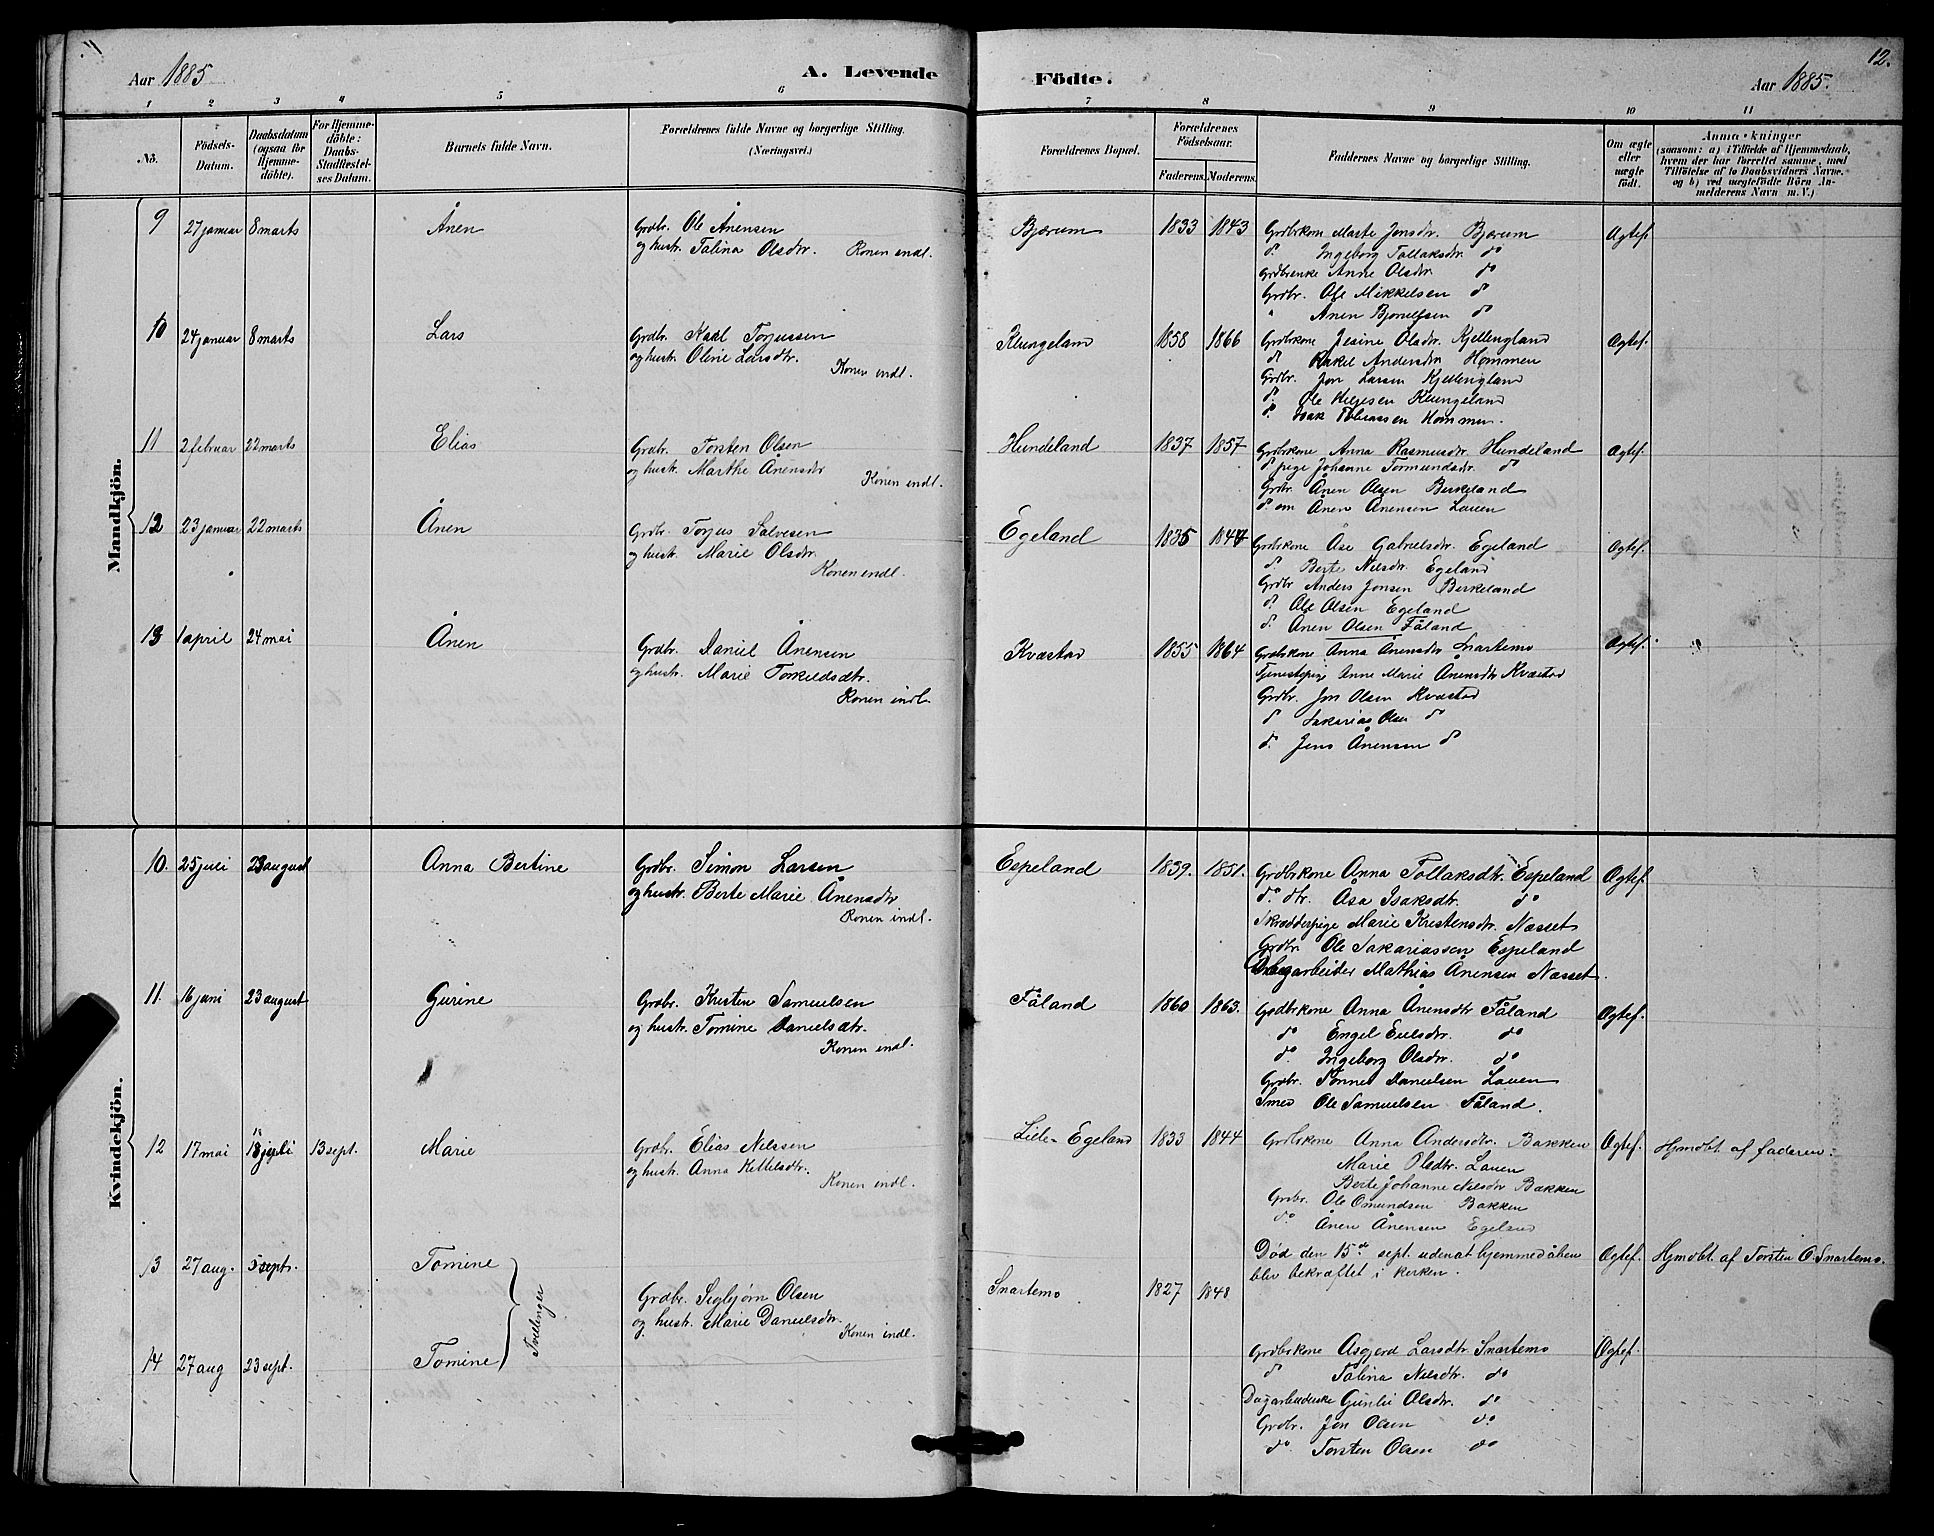 11.
Aar 1885
A. Levende
Födte.
Aar 1885.
12.
1 2 3 4 5 6 7 8 9 10 11
No.
Födsels-Datum.
Daabsdatum (ogsaa for Hjemme-döbte).
For Hjemme-döbte: Daabs-Stadfæstel-ses Datum.
Barnets fulde Navn.
Forældrenes fulde Navne og borgerlige Stilling. (Næringsvei.)
Forældrenes Bopæl.
Forældrenes Födselsaar.
Faderens. Moderens.
Faddernes Navne og borgerlige Stilling.
Om ægte eller uægte født.
Anmærkninger
(saasom: a) i Tilfælde af Hjemmedaab,
hvem der har forrettet samme, med
Tilföielse af to Daabsvidners Navne,
og b) ved uægtefödte Börn An-
melderens Navn m. V.)
Mandkjön.
9 27 januar 8 marts Ånen
Grdbr. Ole Ånensen
og hustr. Talina Olsdtr. Konen indl.
Bjerum 1833 1843
Grdbrkone Marte Jonsdtr. Bjerum
do. Ingeborg Tollaksdtr. do
Grdbrenke Anne Olsdtr. do
Grdbr. Ole Mikkelsen do
" Ånen Bjornelsen do
Ægtef.
10 24 januar 8 marts Lars
Grdbr. Karl Torjussen
og hustr. Oline Larsdtr.
Konen indl.
Klungeland 1858 1866
Grdbrkone Jesine Olsdtr. Kjellingland
do Rakel Andersdtr Hommen
Grdbr. Jon Larsen Kjellingland
do. Ole Helgesen Klungeland
do. Isak Tobiassen Hommen.
Ægtef.
11 2 februar 22 marts Elias
Grdbr. Torsten Olsen
og hustr. Marthe Ånensdtr
Konen indl.
Hundeland 1837 1857
Grdbrkone Anna Rasmusdtr. Hundeland
do pige Johanne Tormundsdtr. do
Grdbr. Ånen Olsen Birkeland
do. om Ånen Ånensen Lauen
Ægtef.
12 23 januar 22 marts Ånen
Grdbr. Torjus Salvesen
og hustr. Marie Olsdtr.
Konen indl.
Egeland 1835 1847
Grdbrkone Åse Gabrielsdtr. Egeland
do. Berte Nilsdtr. Egeland
Grdbr Anders Jonsen Birkeland
do. Ole Olsen Egeland
do. Ånen Olsen Fåland
Ægtef.
13 1 april 24 mai Ånen
Grdbr. Daniel Ånensen
og hustr. Marie Torkildsdtr.
Konen indl.
Kvæstad 1855 1864
Grdbrkone Anna Ånensdtr Snartemo
Tjenestepige Anne Marie Ånensdtr Kvæstad
Grdbr. Jon Olsen Kvæstad
do Sakarias Olsen do
do. Jens Ånensen do
Ægtef.
Kvindekjön.
10. 25 juli 23 august Anna Bertine
Grdbr. Simon Larsen
og hustr. Berte Marie Ånensdtr
Konen indl.
Espeland 1839. 1851.
Grdbrkone Anna Tollaksdtr. Espeland
do. dtr. Åsa Isaksdtr. do
Skrædderpige Marie Kristensdtr. Næsset
Grdbr. Ole Sakariassen Espeland
Dagarbeider Mathias Ånensen Næsset.
Ægtef.
11. 16 juni 23 august Gurine
Grdbr. Kristen Samuelsen
og hustr. Tomine Danielsdtr.
Konen indl.
Fåland 1860 1863.
Grdbrkone Anna Ånensdtr Fåland
do Engel Eielsdtr. do
do. Ingeborg Olsdtr. do
Grdbr. Tønnes Danielsen Lauen
Smed Ole Samuelsen Fåland.
Ægtef.
12 17 mai 18 juli 13 sept. Marie
Grdbr. Elias Nilssen
og hustr. Anna Kittelsdtr.
Konen indl.
Lille Egeland 1833 1844
Grdbrkone Anna Andersdtr. Bakken
Marie Olsdtr. Lauen
Berte Johanne Nilsdtr Bakken
Grdbr. Ole Omundsen Bakken
do. Ånen Ånensen Egeland
Ægtef. Hjmdbt. af faderen.
13 27 aug. 5 sept. Tomine
Tvillinger
Grdbr. Sigbjørn Olsen
og hustr. Marie Danielsdtr.
Konen indl.
Snartemo 1827 1848
Død den 15de sept. uden at hjemmedåben
blev bekræftet i kirken.
Ægtef. Hjmdbt. af Torsten O. Snartemo.
14 27 aug 23 sept. Tomine
Grdbrkone Asgjerd Larsdtr. Snartemo
do Talina Nilsdtr. do
Dagarbeiderske Gunlei Olsdtr. do
Grdbr. Jon Olsen do.
do. Torsten Olsen do
Ægtef.